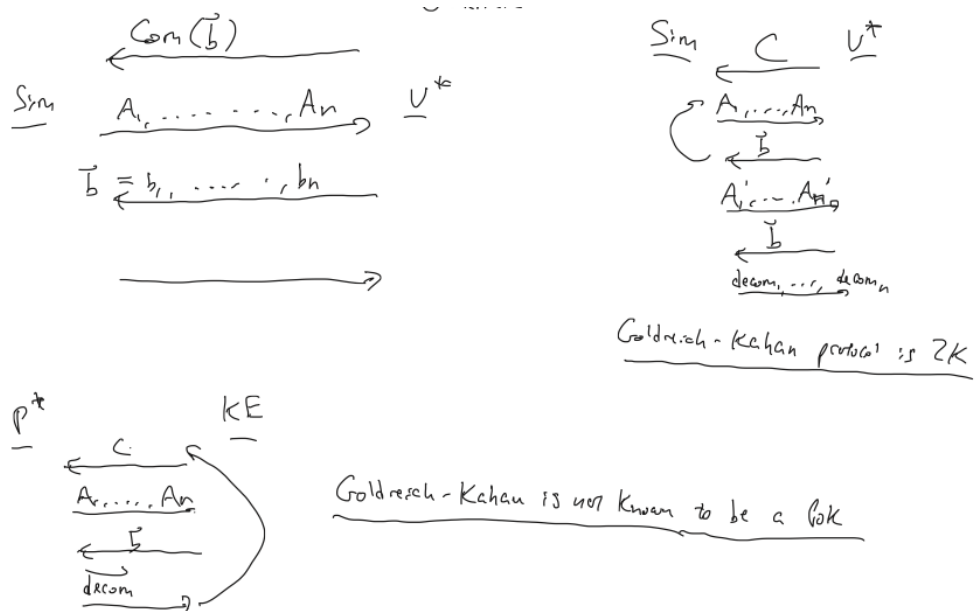 Com(b⃗)
Sim A₁, . . . . . . , Aₙ V*
b⃗ = b₁, . . . . . , bₙ
Sim C V*
A₁, ..., Aₙ
b⃗
A₁', ..., Aₙ'
b⃗
decom₁, ..., decomₙ
Goldreich-Kahan protocol is ZK
P* KE
C
A₁, ..., Aₙ
b⃗
decom
Goldreich-Kahan is not known to be a PoK